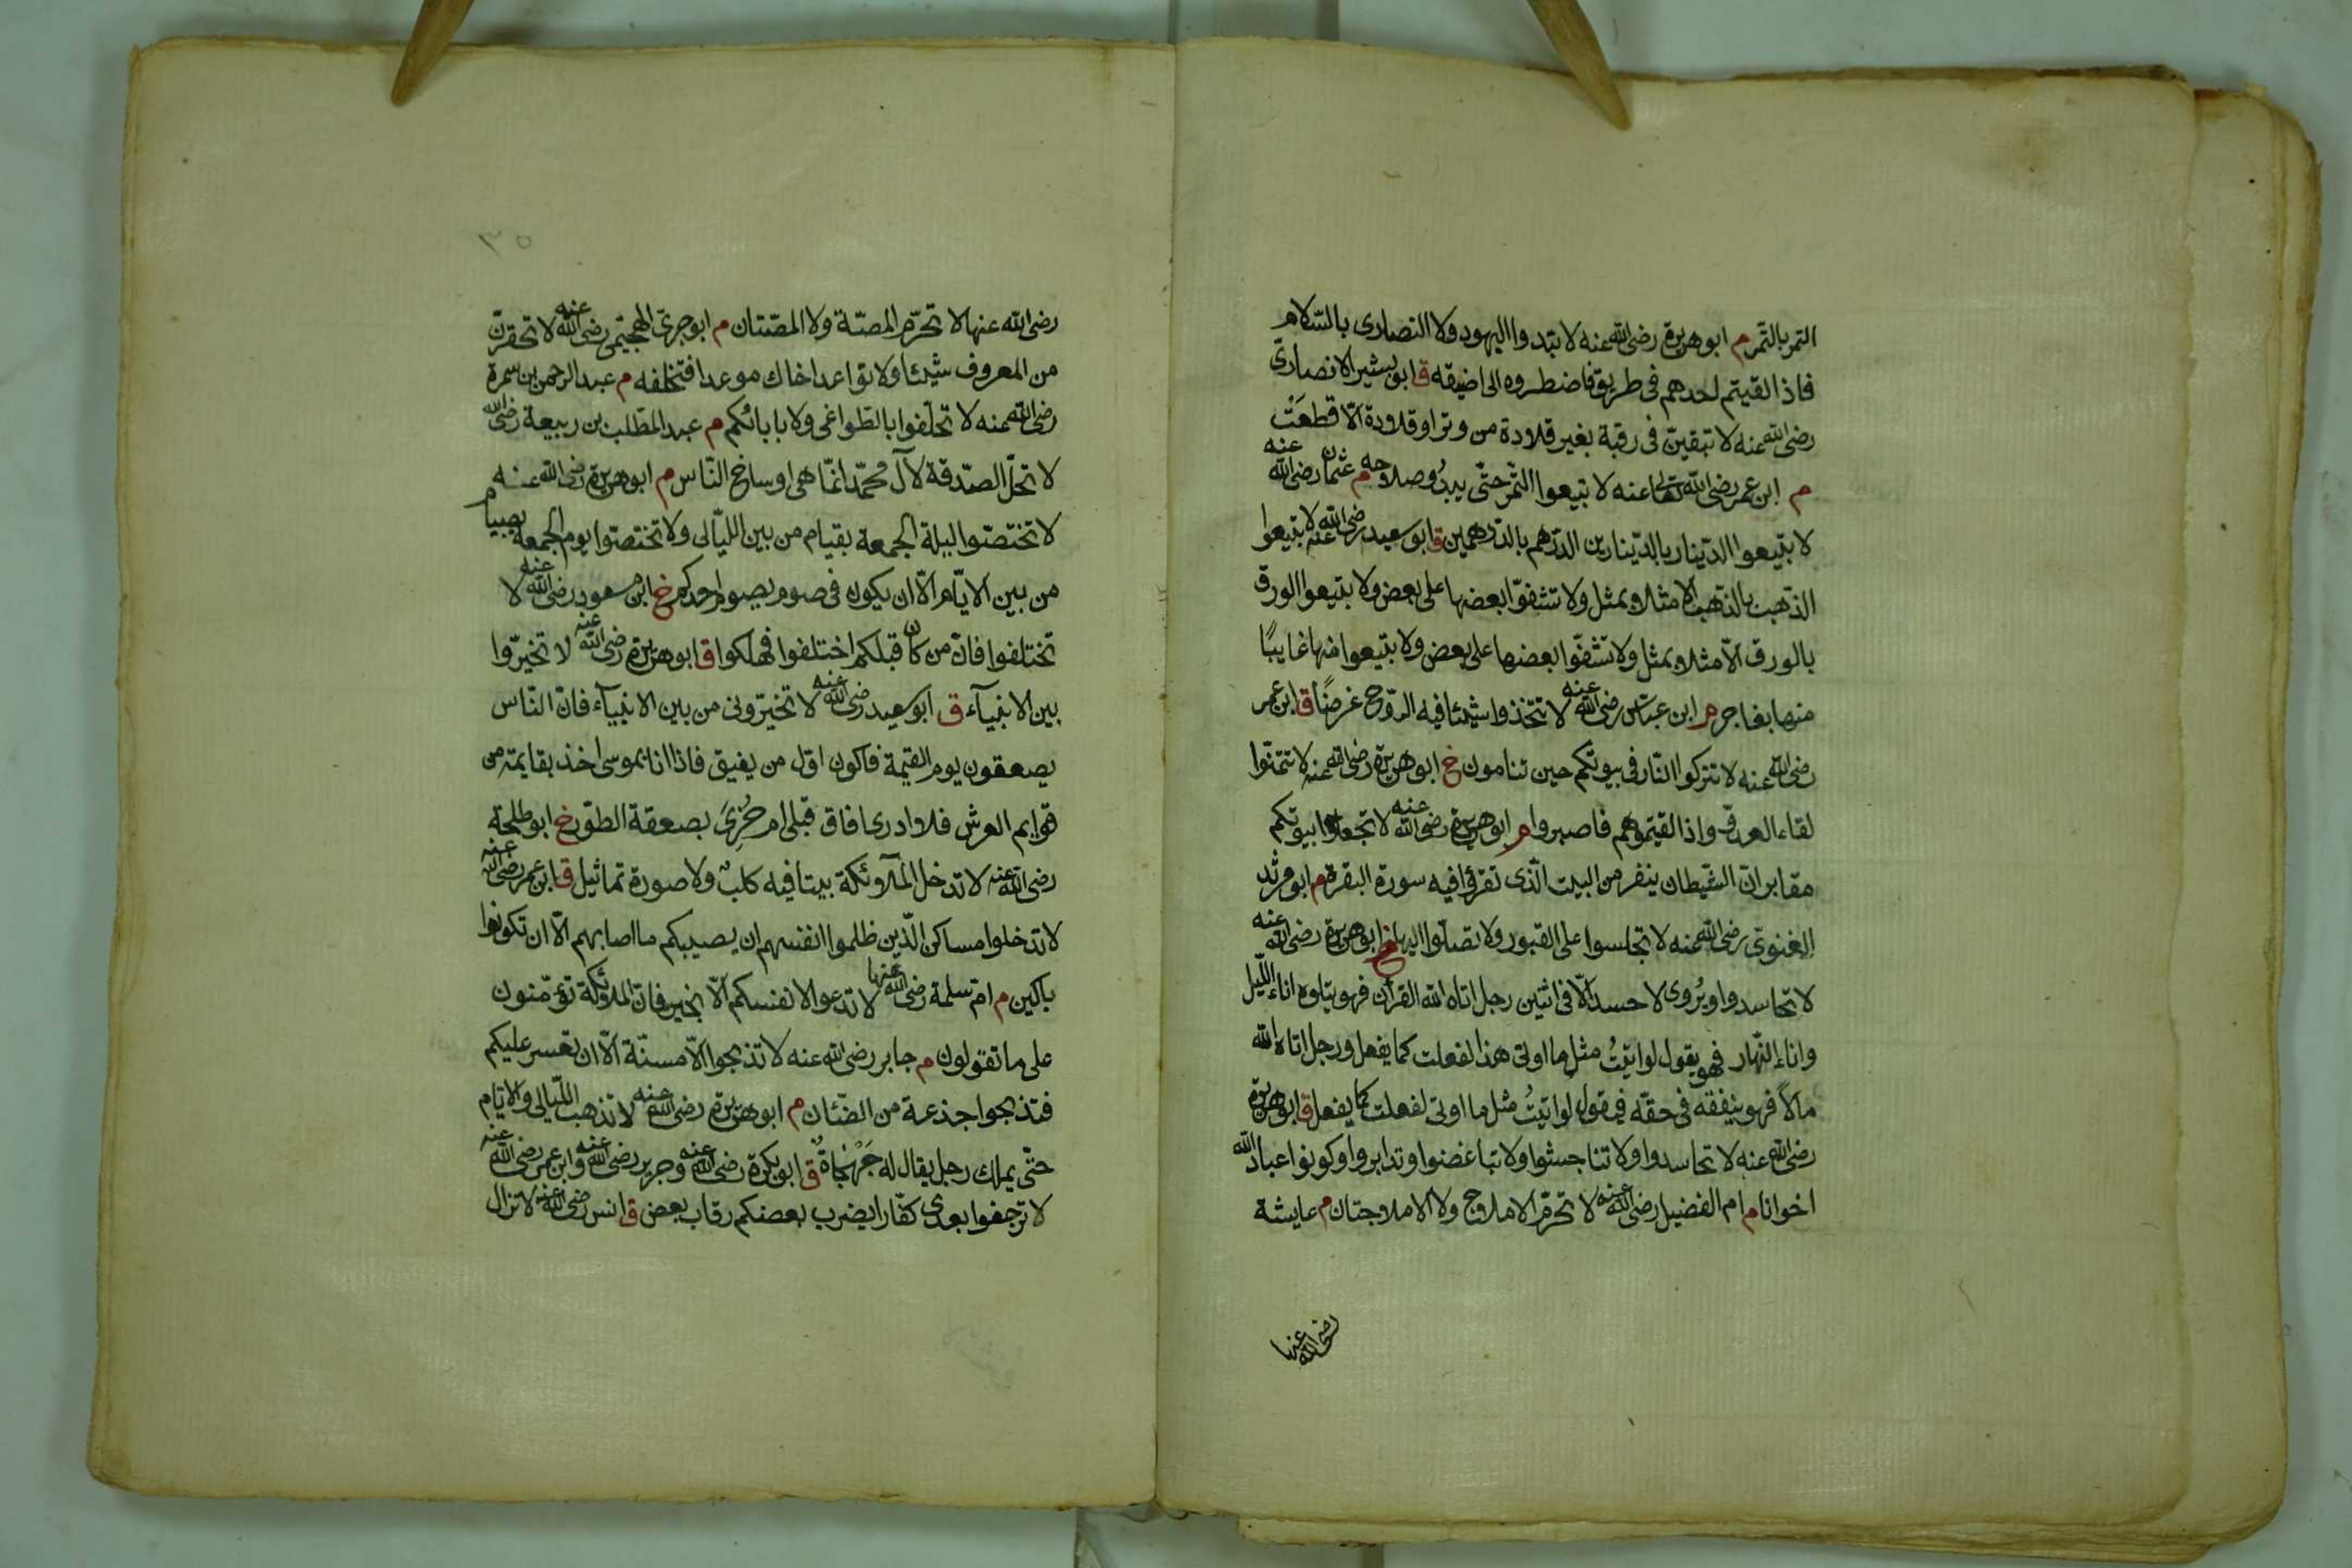 التمر بالتمر م ابو هريرة رضى الله عنه لا تبتدوا اليهود ولا النصارى بالسلام
فاذا لقيتم احدهم فى طريق فاضطروه الى اضيقه ق ابو بشير الانصارى
رضى الله عنه لا تبقين فى رقبة بغير قلادة من وتر او قلادة الا قطعت
م ابن عمر رضى الله تعالى عنه لا تبيعوا الثمر حتى يبدو صلاحه م عثمان رضى الله عنه
لا تبيعوا الدينار بالدينارين الدرهم بالدرهمين ق ابو سعيد رضى الله عنه لا تبيعوا
الذهب بالذهب الا مثلا بمثل ولا تشفوا بعضها على بعض ولا تبيعوا الورق
بالورق الا مثلا بمثل ولا تشفوا بعضها على بعض ولا تبيعوا منها غايبا
منها بفاجر م ابن عباس رضى الله عنه لا تتخذوا شيئا فيه الروح غرضا ق ابن عمر
رضى الله عنه لا تتركوا النار فى بيوتكم حين تنامون خ ابو هريرة رضى الله عنه لا تتمنوا
لقاء العدو واذا لقيتموهم فاصبروا م ابو هريرة رضى الله عنه لا تجعلوا بيوتكم
مقابر ان الشيطان ينفر من البيت الذى تقرأ فيه سورة البقرة م ابو مرثد
الغنوى رضى الله عنه لا تجلسوا على القبور ولا تصلوا اليها خ ابو هريرة رضى الله عنه
لا تحاسدوا ويروى لا حسد الا فى اثنين رجل اتاه الله القرآن فهو يتلوه اناء الليل
واناء النهار فهو يقول لو اتيت مثل ما اوتى هذا لفعلت كما يفعل ورجل اتاه الله
مالا فهو ينفقه فى حقه فيقول لو اتيت مثل ما اوتى لفعلت كما يفعل ق ابو هريرة
رضى الله عنه لا تحاسدوا ولا تناجشوا ولا تباغضوا وتدابروا وكونوا عباد الله
اخوانا م ام الفضيل رضى الله عنه لا تحرم الاملاج ولا الاملاجتان م عايشة
رضى الله عنها
٣٥
رضى الله عنها لا تحرم المصة ولا المصتان م ابو جرى الهجيمى رضى الله عنه لا تحقرن
من المعروف شيئا ولا تواعد اخاك موعدا فتخلفه م عبد الرحمن بن سمرة
رضى الله عنه لا تحلفوا بالطواغى ولا بابائكم م عبد المطلب بن ربيعة رضى الله
لا تحل الصدقة لآل محمد انما هى اوساخ الناس م ابو هريرة رضى الله عنه
لا تختصوا ليلة الجمعة بقيام من بين الليالى ولا تختصوا يوم الجمعة بصيام
من بين الايام الا ان يكون فى صوم يصوم احدكم خ ابن مسعود رضى الله عنه لا
تختلفوا فان من كان قبلكم اختلفوا فهلكوا ق ابو هريرة رضى الله عنه لا تخيروا
بين الانبياء ق ابو سعيد رضى الله عنه لا تخيرونى من بين الانبياء فان الناس
يصعقون يوم القيمة فاكون اول من يفيق فاذا انا بموسى اخذ بقايمة من
قوايم العرش فلا ادرى افاق قبلى ام جزى بصعقة الطور خ ابو طلحة
رضى الله عنه لا تدخل الملائكة بيتا فيه كلب ولا صورة تماثيل ق ابن عمر رضى الله عنه
لا تدخلوا مساكن الذين ظلموا انفسهم ان يصيبكم ما اصابهم الا ان تكونوا
باكين م ام سلمة رضى الله عنها لا تدعوا لا نفسكم الا بخير فان الملائكة تؤمنون
على ما تقولون م جابر رضى الله عنه لا تذبحوا الا مسنة الا ان تعسر عليكم
فتذبحوا جذعة من الضئان م ابو هريرة رضى الله عنه لا تذهب الليالى والايام
حتى يملك رجل يقال له جهجاة ق ابو بكرة رضى الله عنه وجرير رضى الله عنه وابن عمر رضى الله عنه
لا ترجعوا بعدى كفارا يضرب بعضكم رقاب بعض ق انس رضى الله عنه لا تزال